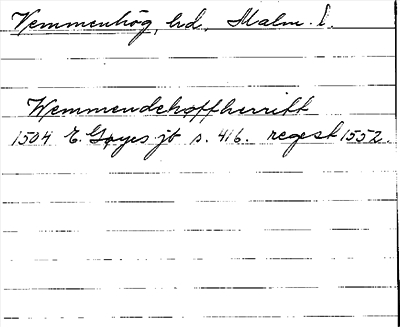 Vemmenhög, hd, Malm. l.
Wemmendehoffherritt
1504 E. Gøyes jb s. 416. regest 1552.